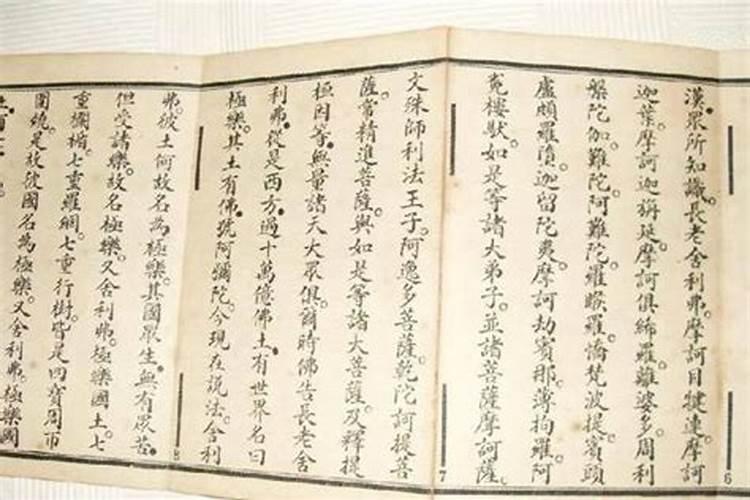 漢。眾所知識。長老舍利弗。摩訶目犍連。摩訶
迦葉。摩訶迦旃延。摩訶俱絺羅。離婆多。周利
槃陀伽。難陀。阿難陀。羅睺羅。憍梵波提。賓頭
盧頗羅墮。迦留陀夷。摩訶劫賓那。薄拘羅。阿
㝹樓馱。如是等諸大弟子。並諸菩薩摩訶薩。
文殊師利法王子。阿逸多菩薩。乾陀訶提菩
薩。常精進菩薩。與如是等諸大菩薩。及釋提
桓因等。無量諸天大眾俱。爾時佛告長老舍
利弗。從是西方。過十萬億佛土。有世界名曰
極樂。其土有佛。號阿彌陀。今現在說法。舍利
弗。彼土何故名為極樂。其國眾生。無有眾苦。
但受諸樂。故名極樂。又舍利弗。極樂國土。七
重欄楯。七重羅網。七重行樹。皆是四寶。周帀
圍繞。是故彼國名為極樂。又舍利弗。極樂國
6
7
8